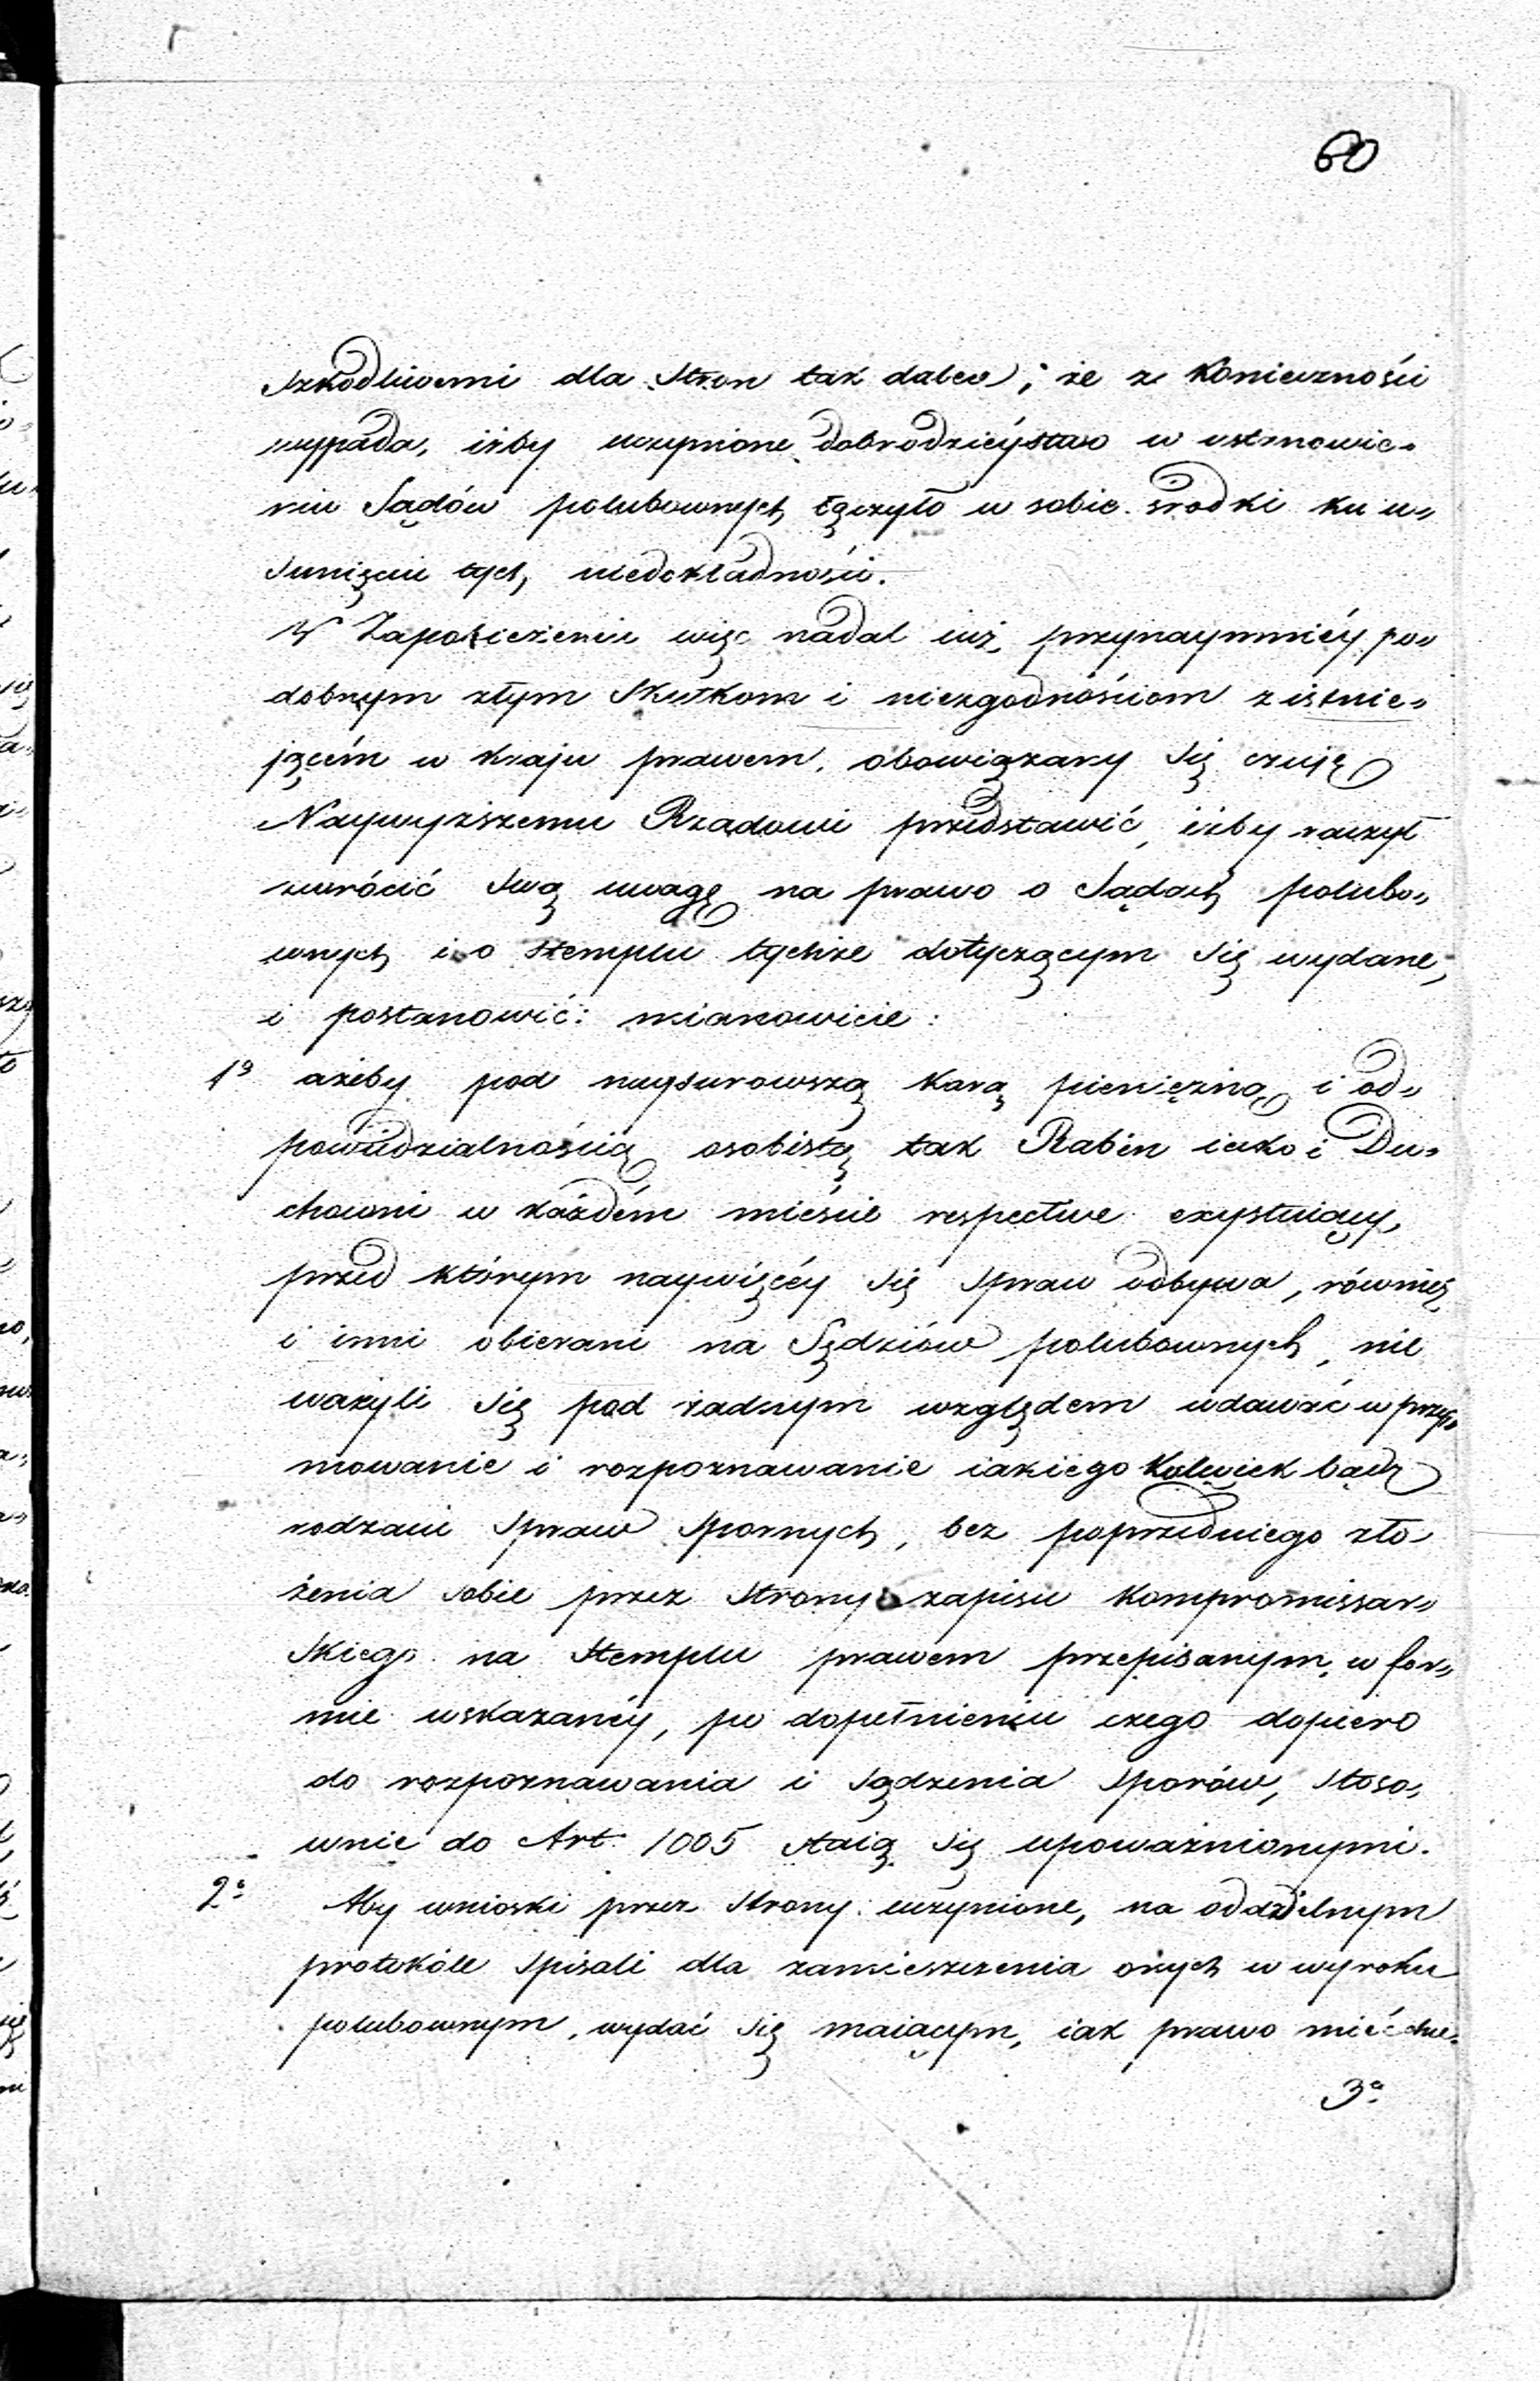 60
szkodliwemi dla Stron tak dalece, że z konieczności
wypada, iżby uczynione dobrodzieystwo w ustanowie„
niu Sądów polubownych łączyło w sobie środki ku u„
sunięciu tych niedokładności.
W Zapobieżeniu więc nadal iuż, przynaymniéy po„
dobnym złym Skutkom i niezgodnościom z istnie„
jącém w kraju prawem, obowiązany się czuję
Naywyższemu Rządowi przedstawić, iżby raczył
zwrócić swą uwagę na prawo o Sądach polubo„
wnych i o stemplu tychże dotyczącym się wydane,
i postanowić: mianowicie:
1o ażeby pod naysurowszą karą pieniężną i od„
powiedzialnością osobistą tak Rabin iako i Du„
chowni w każdém mieście respective exystuiący,
przed którym naywięcéy się spraw odbywa, również
i inni obierani na Sędziów polubownych, nie
ważyli się pod żadnym względem wdawać w przyj„
mowanie i rozpoznawanie iakiego kolwiek bądź
rodzaiu spraw spornych, bez poprzedniego zło
żenia sobie przez Strony zapisu kompromissar„
skiego na Stemplu prawem przepisanym, w for„
mie wskazanéy, po dopełnieniu czego dopiero
do rozpoznawania i sądzenia sporów, stoso„
wnie do Art. 1005 staią się upoważnionymi.
2o Aby wnioski przez Strony uczynione, na oddzielnym
protokóle spisali dla zamieszczenia onych w wyroku
polubownym, wydać się maiącym, iak prawo mieć chce.
3o